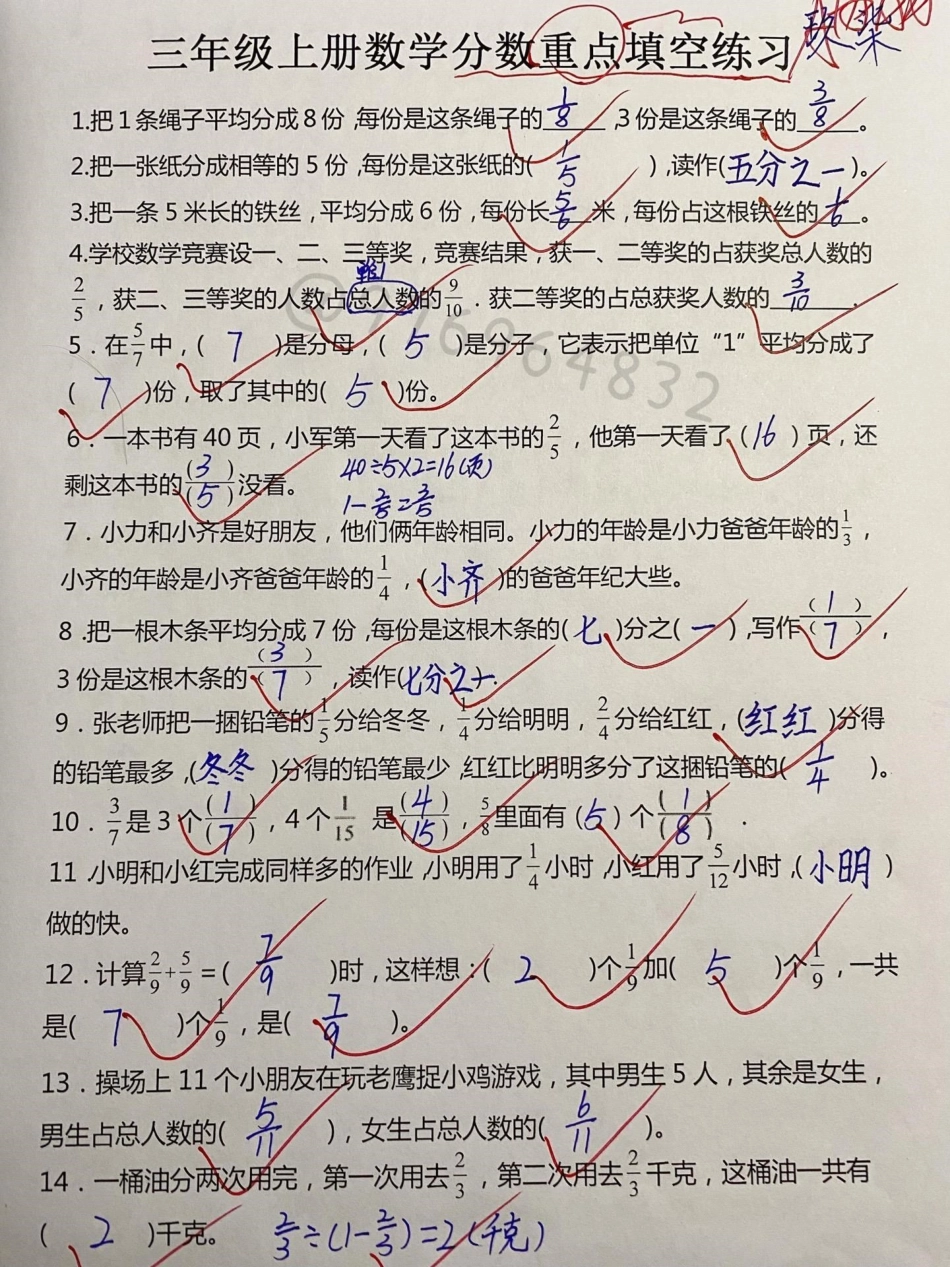 三年级上册数学分数重点填空练习
玖柒
1.把1条绳子平均分成8份,每份是这条绳子的 1/8 ,3份是这条绳子的 3/8 。
2.把一张纸分成相等的5份,每份是这张纸的( 1/5 ),读作(五分之一)。
3.把一条5米长的铁丝,平均分成6份,每份长 5/6 米,每份占这根铁丝的 1/6 。
4.学校数学竞赛设一、二、三等奖,竞赛结果,获一、二等奖的占获奖总人数的
2/5,获二、三等奖的人数占总人数的9/10.获二等奖的占总获奖人数的 3/10 .
5.在5/7中,( 7 )是分母,( 5 )是分子,它表示把单位“1”平均分成了
( 7 )份,取了其中的( 5 )份。
6.一本书有40页,小军第一天看了这本书的2/5,他第一天看了(16)页,还
剩这本书的(3)/(5)没看。 40÷5×2=16(页)
1-2/5=3/5
7.小力和小齐是好朋友,他们俩年龄相同。小力的年龄是小力爸爸年龄的1/3,
小齐的年龄是小齐爸爸年龄的1/4,(小齐)的爸爸年纪大些。
8.把一根木条平均分成7份,每份是这根木条的(七)分之(一),写作(1)/(7),
3份是这根木条的(3)/(7),读作(七分之一).
9.张老师把一捆铅笔的1/5分给冬冬,1/4分给明明,2/4分给红红,(红红)分得
的铅笔最多,(冬冬)分得的铅笔最少,红红比明明多分了这捆铅笔的( 1/4 )。
10.3/7是3个(1)/(7),4个1/15是(4)/(15),5/8里面有(5)个(1)/(8).
11.小明和小红完成同样多的作业,小明用了1/4小时,小红用了5/12小时,(小明)
做的快。
12.计算2/9+5/9=( 7/9 )时,这样想:( 2 )个1/9加( 5 )个1/9,一共
是( 7 )个1/9,是( 7/9 )。
13.操场上11个小朋友在玩老鹰捉小鸡游戏,其中男生5人,其余是女生,
男生占总人数的( 5/11 ),女生占总人数的( 6/11 )。
14.一桶油分两次用完,第一次用去2/3,第二次用去2/3千克,这桶油一共有
( 2 )千克。 2/3÷(1-2/3)=2(千克)